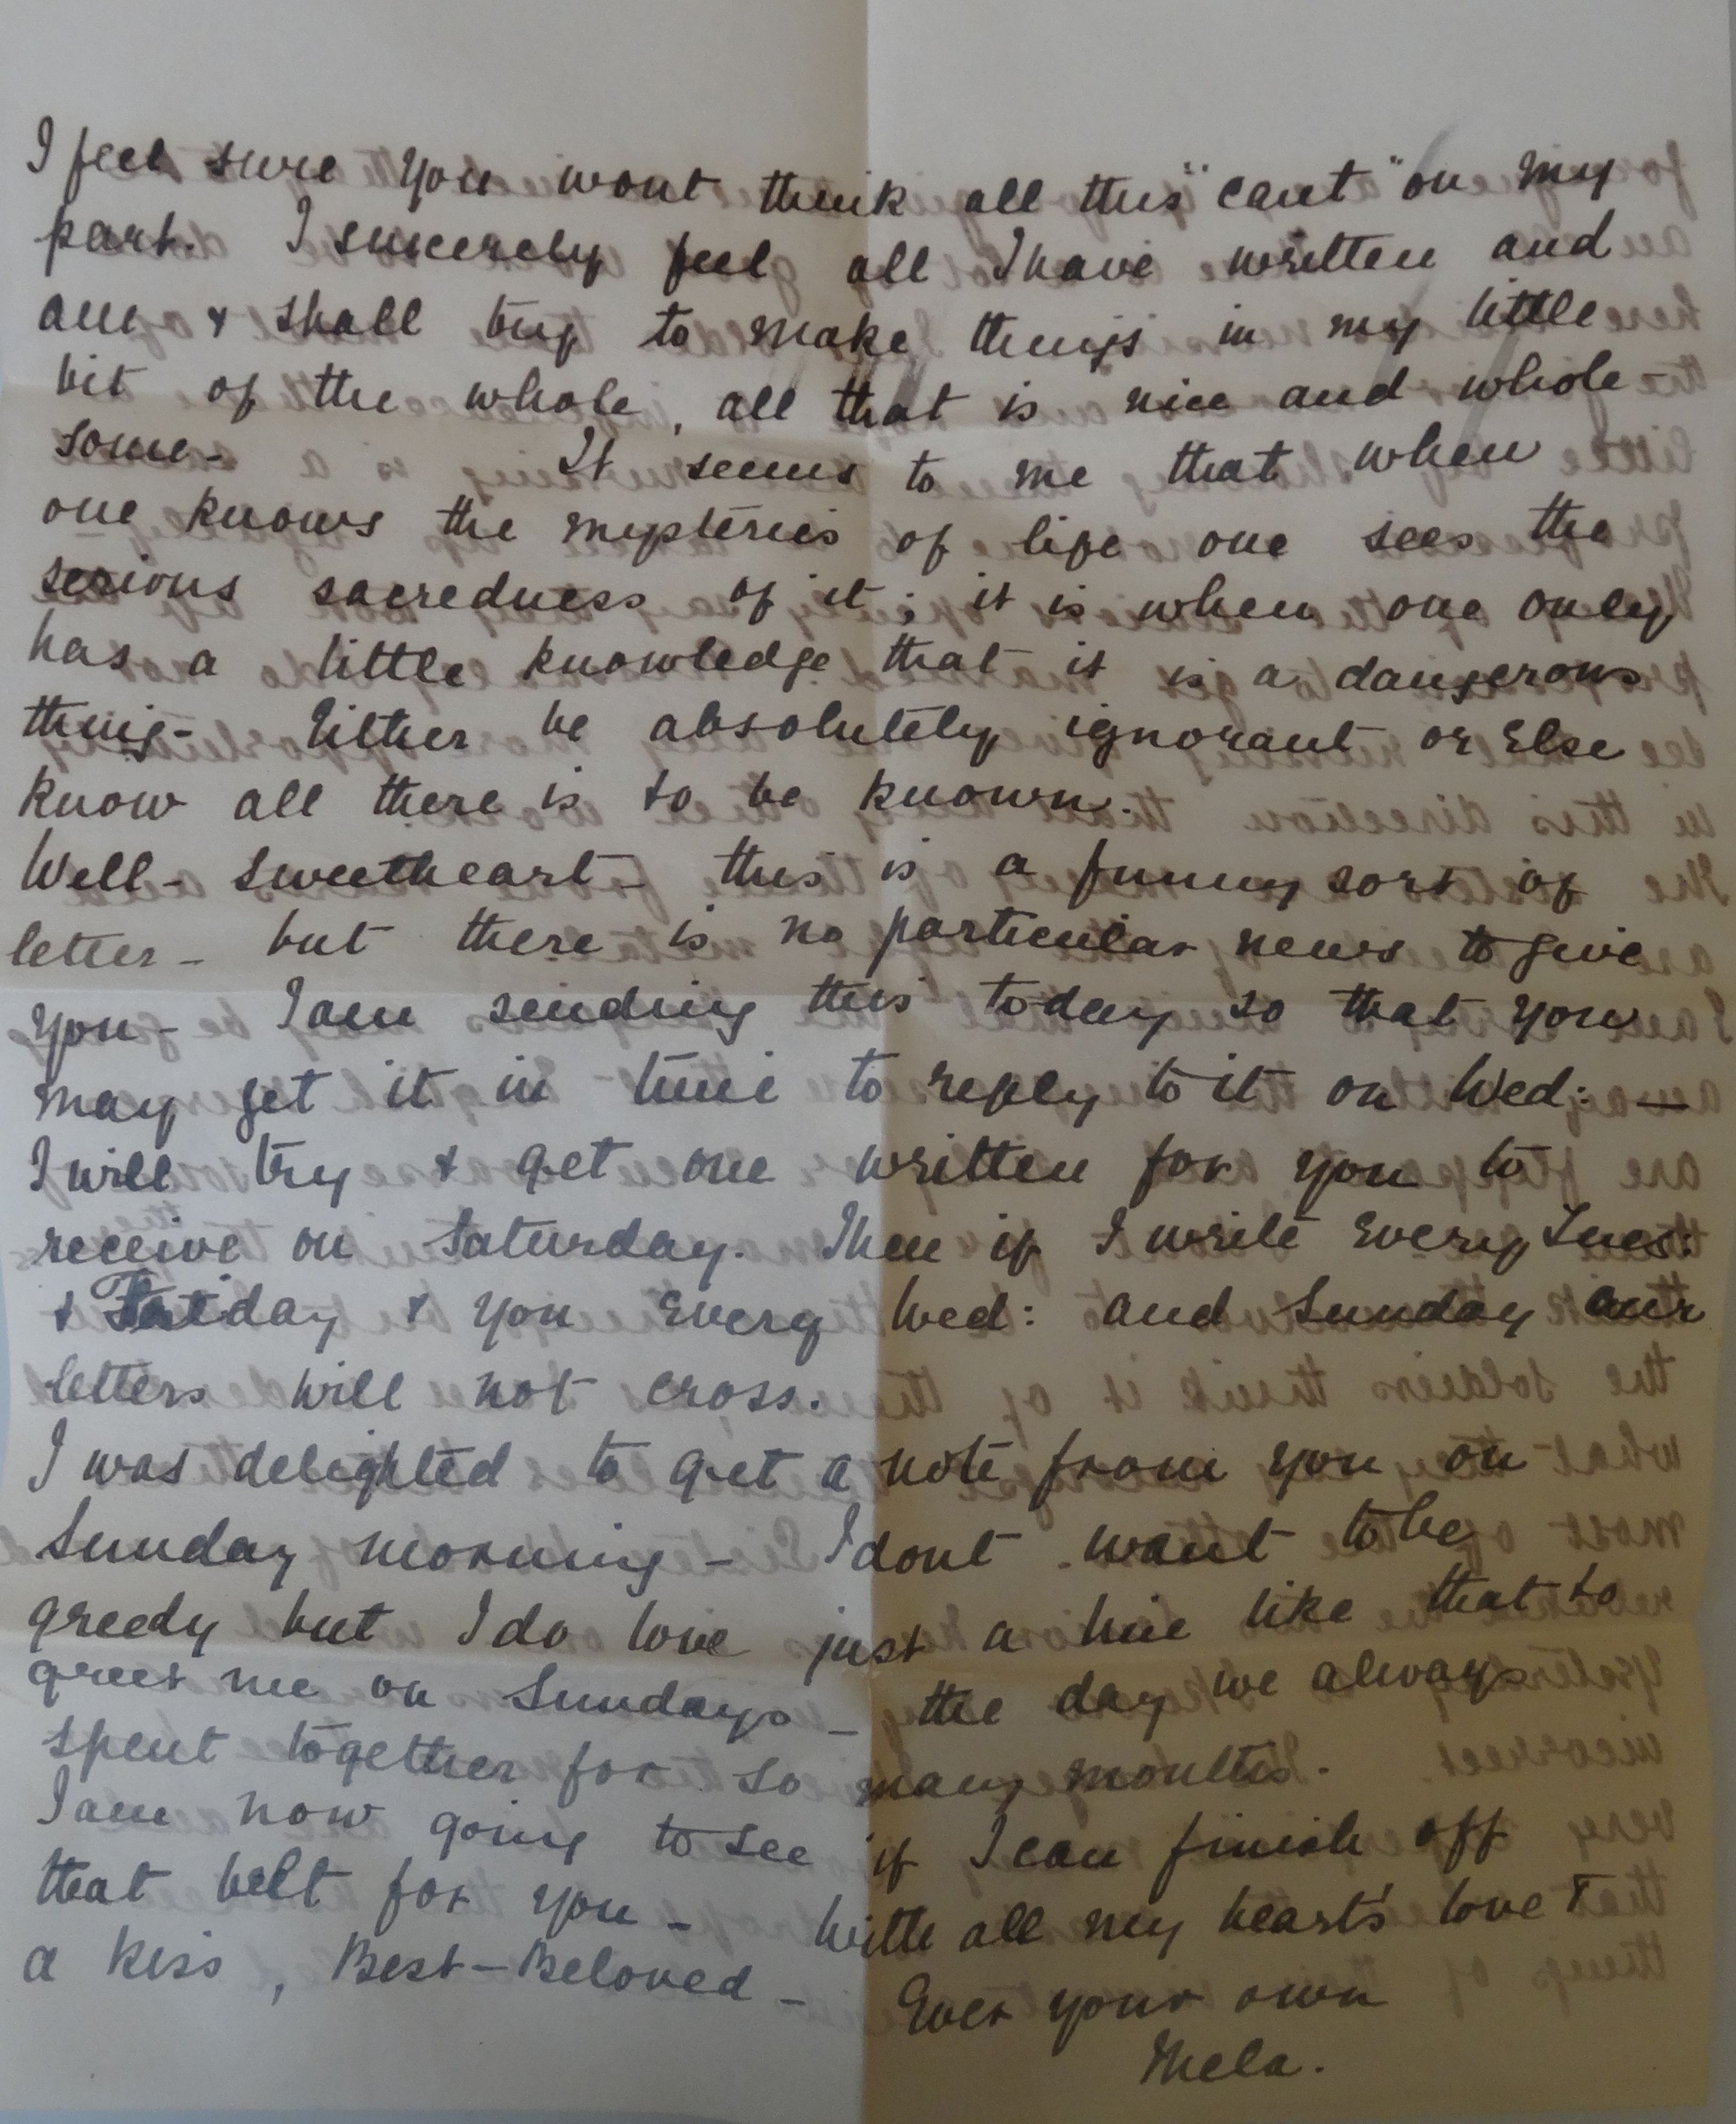 I feel sure you wont think all this "cant" on my
part. I sincerely feel all I have written and
am & shall try to make things in my little
bit of the whole, all that is nice and whole-
some- It seems to me that when
one knows the mysteries of life one sees the
serious sacredness of it; it is when one only
has a little knowledge that it is a dangerous
thing- Either be absolutely ignorant or else
know all there is to be known.
Well- sweetheart- this is a funny sort of
letter- but there is no particular news to give
you- I am sending this today so that you
may get it in time to reply to it on Wed: —
I will try & get one written for you to
receive on Saturday. Then if I write every Tues:
& Friday & you every Wed: and Sunday our
letters will not cross.
I was delighted to get a note from you on
Sunday morning- I dont want to be
greedy but I do love just a line like that to
greet me on Sundays- the day we always
spent together for so many months.
I am now going to see if I can finish off
that belt for you- With all my heart's love &
a kiss, Best-Beloved-
Ever your own